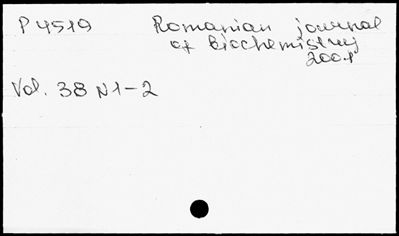 P 4519 Romanian journal
of biochemistry
2001
Vol. 38 N1-2